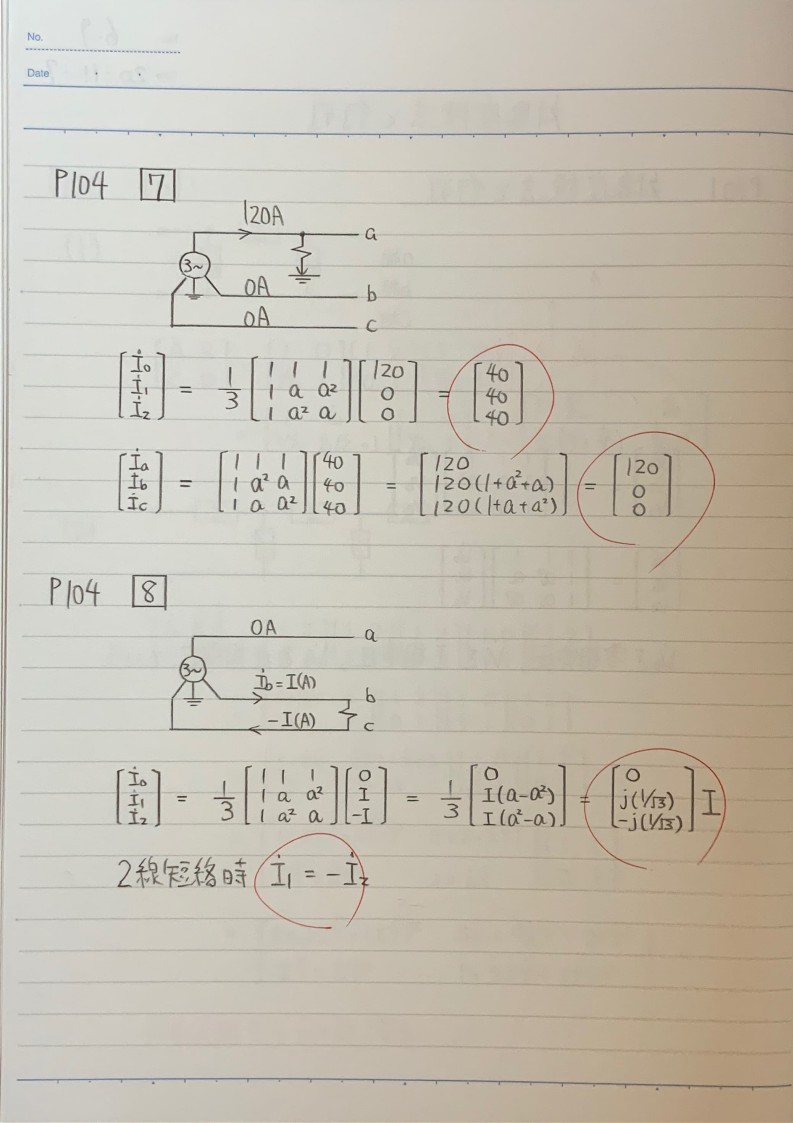 No.
Date
P104 7
120A
a
3~
0A b
0A c
[İ0 İ1 İ2] = 1/3 [1 1 1 / 1 a a² / 1 a² a] [120 0 0] = [40 40 40]
[İa İb İc] = [1 1 1 / 1 a² a / 1 a a²] [40 40 40] = [120 / 120(1+a²+a) / 120(1+a+a²)] = [120 0 0]
P104 8
0A a
3~
İb=I(A) b
-I(A) c
[İ0 İ1 İ2] = 1/3 [1 1 1 / 1 a a² / 1 a² a] [0 I -I] = 1/3 [0 / I(a-a²) / I(a²-a)] = [0 / j(1/√3) / -j(1/√3)] I
2線短絡時 İ1 = -İ2